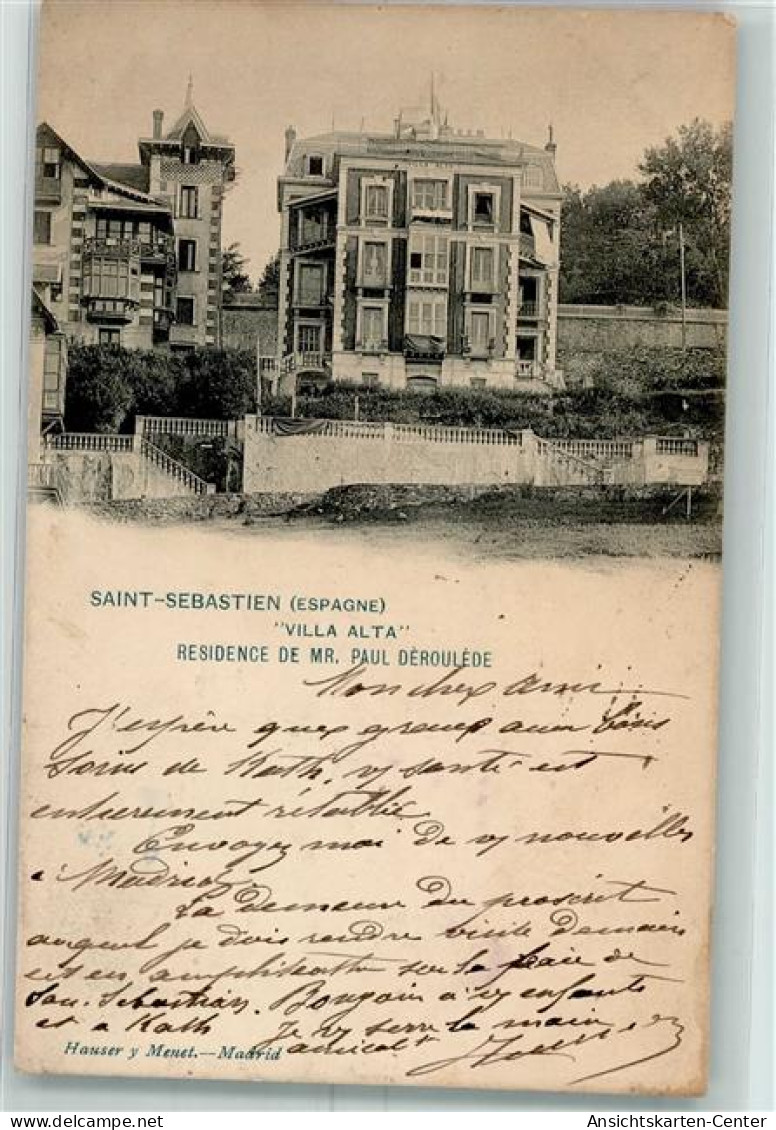 VILLA ALTA
SAINT-SEBASTIEN (ESPAGNE)
"VILLA ALTA"
RESIDENCE DE MR. PAUL DÈROULÈDE
Mon cher ami
J'espère que grace aux bons
soins de Kath, vs santé est
entierement rétablie
Envoyez moi de vs nouvelles
à Madrid.
La demeure du proscrit
auquel je dois rendre visite demain
est en amphitéatre sur la baie de
San. Sebastian. Bonjour à vs enfants
et a Kath Je vs serre la main
amicalt
Hauser y Menet.—Madrid
Ansichtskarten-Center